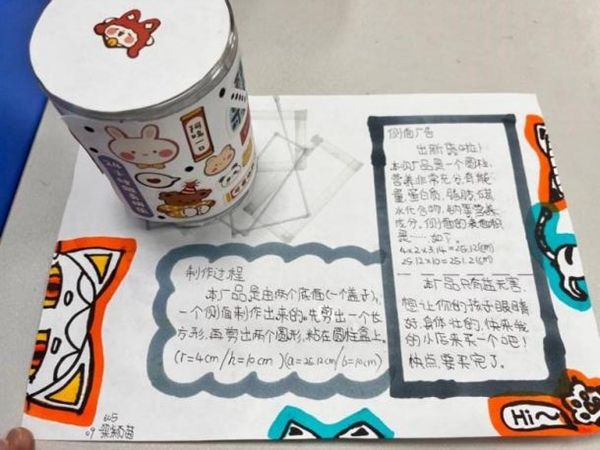 阿嚏一口
制作过程
本厂品是由两个底面(一个盖子),
一个侧面制作出来的。先剪出一个长
方形,再剪出两个圆形,粘在圆柱盒上。
(r=4cm/h=10cm)(a=25.12cm/b=10cm)
侧面广告
出新货啦!
本厂品是一个圆柱,
营养非常充分,有能
量,蛋白质,脂肪,碳
水化合物,钠等营养
成分。侧面的表面积
是……如下。
4×2×3.14=25.12(cm)
25.12×10=251.2(cm²)
本厂品只有益无害,
想让你的孩子眼睛
好,身体壮的,快来我
的小店来买一个吧!
快点,要买完了。
Hi~
605
09